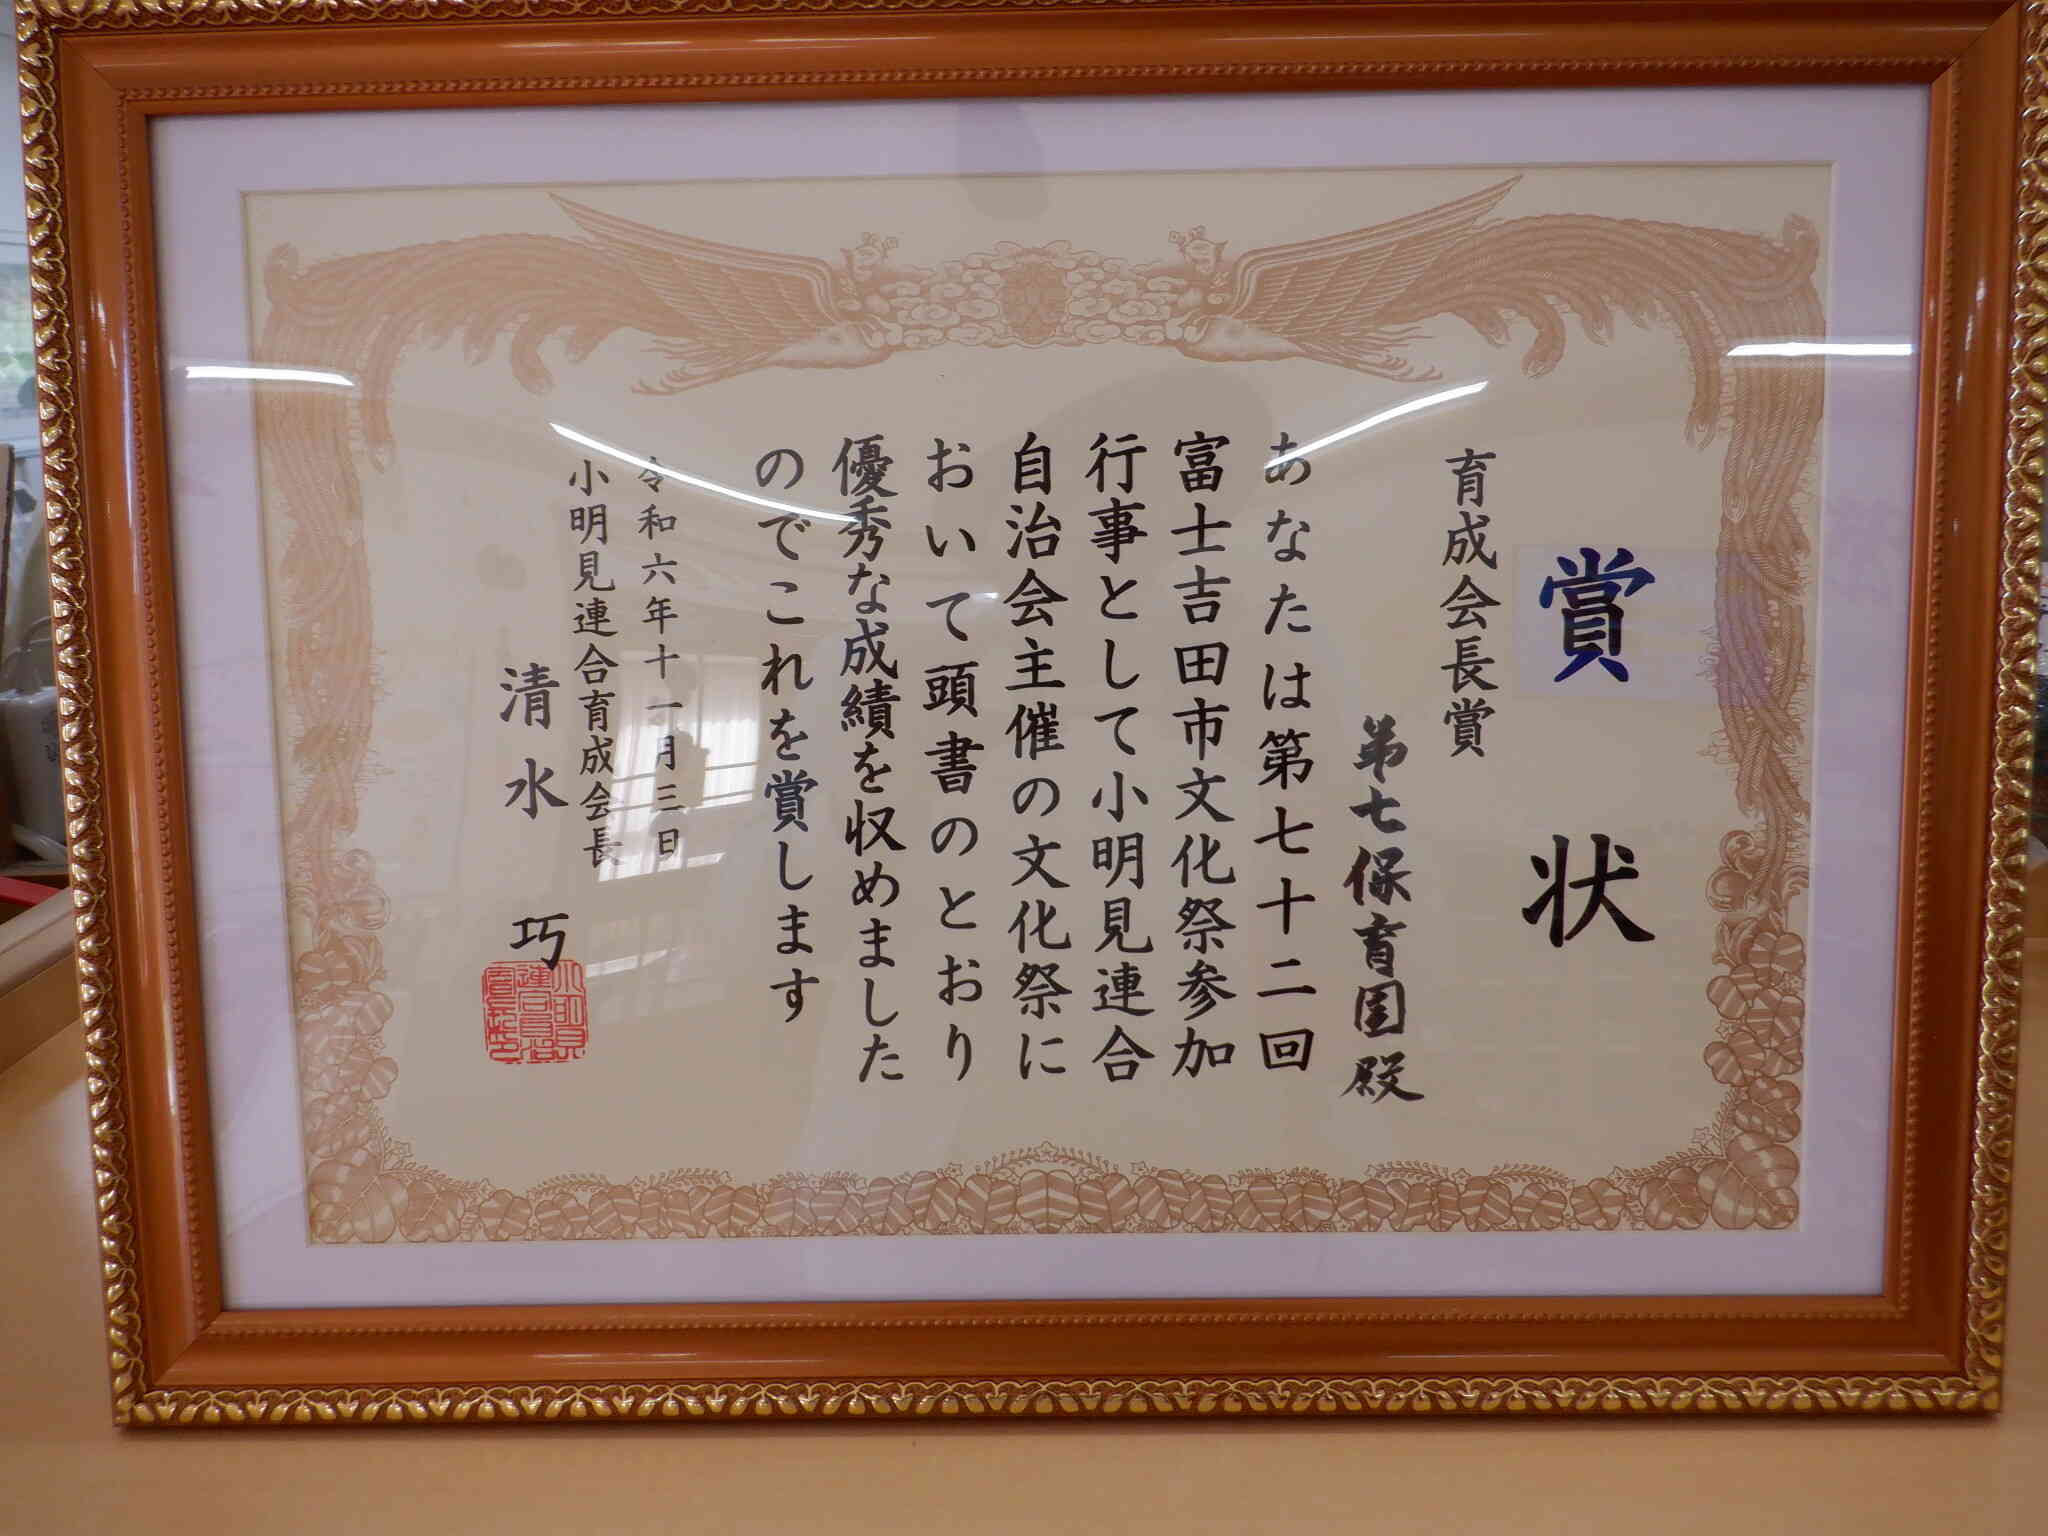 賞状
育成会長賞
第七保育園殿
あなたは第七十二回
富士吉田市文化祭参加
行事として小明見連合
自治会主催の文化祭に
おいて頭書のとおり
優秀な成績を収めました
のでこれを賞します
令和六年十一月三日
小明見連合育成会長
清水巧